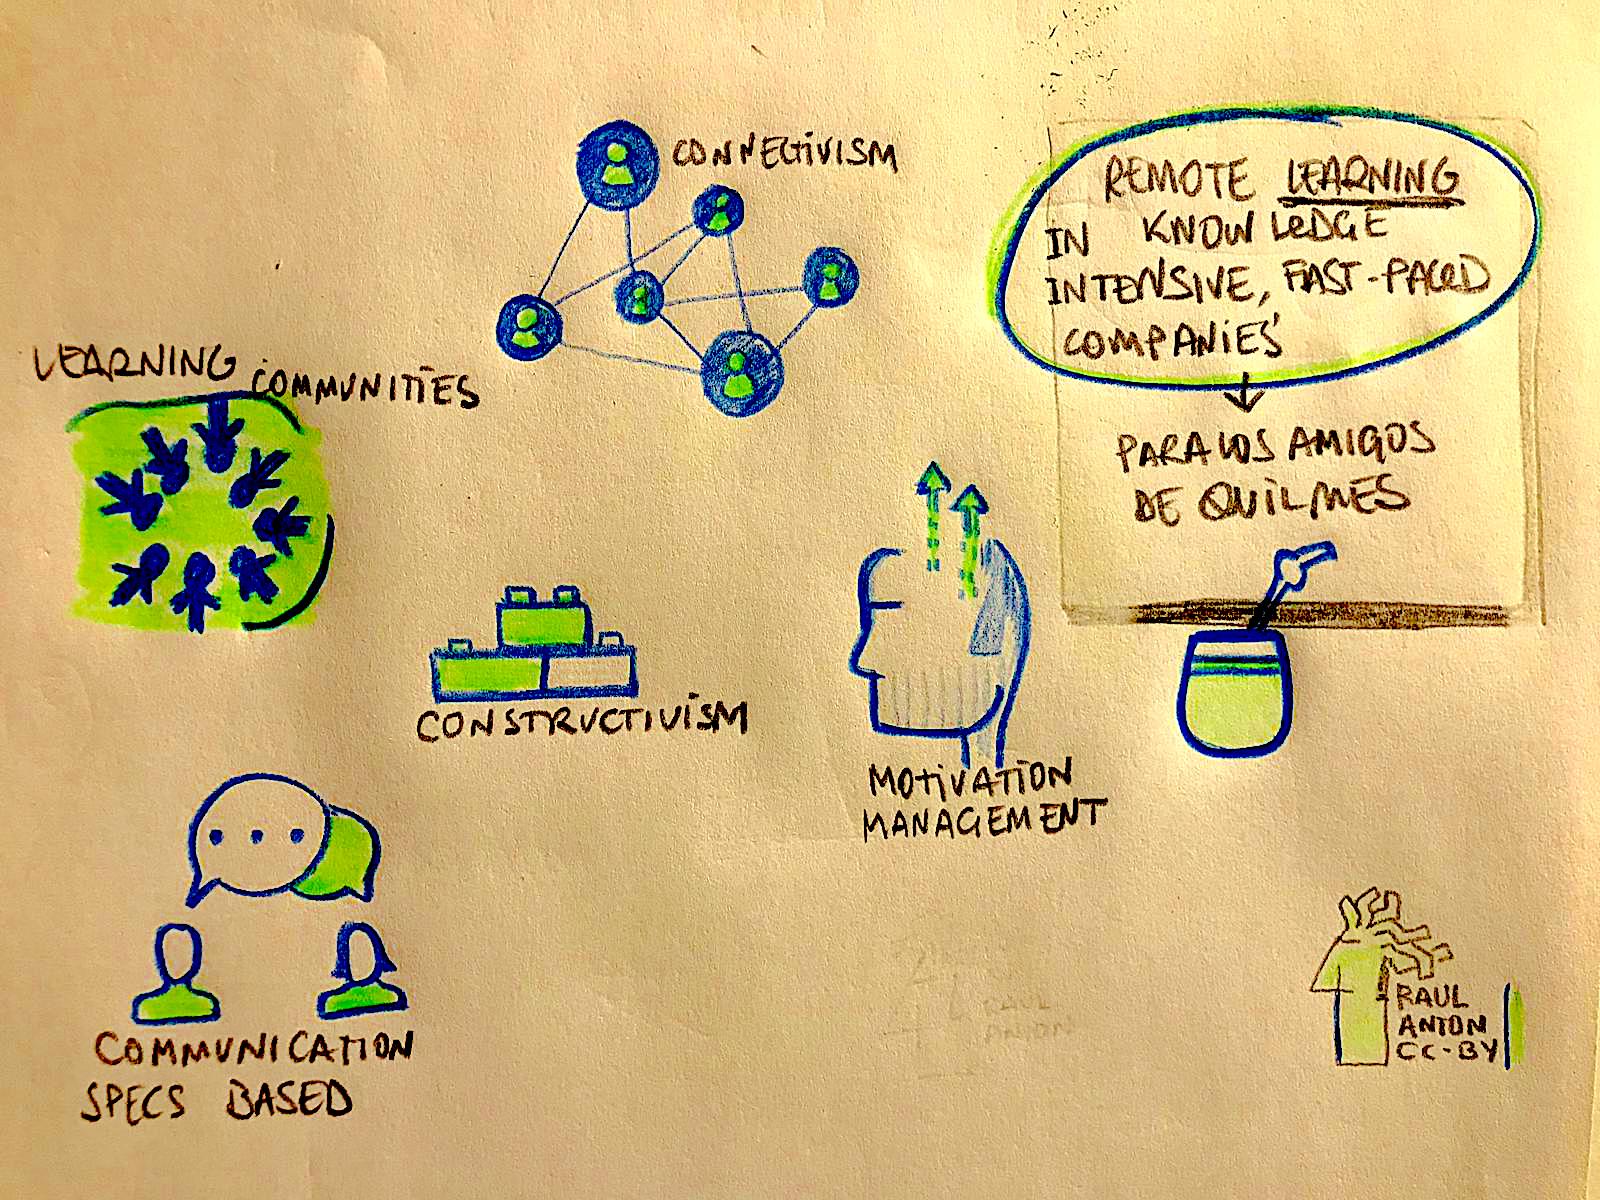 CONNECTIVISM
REMOTE LEARNING
IN KNOWLEDGE
INTENSIVE, FAST-PACED
COMPANIES
PARA LOS AMIGOS
DE QUILMES
LEARNING
COMMUNITIES
CONSTRUCTIVISM
MOTIVATION
MANAGEMENT
COMMUNICATION
SPECS BASED
RAUL
ANTON
CC-BY
RAUL
ANTON